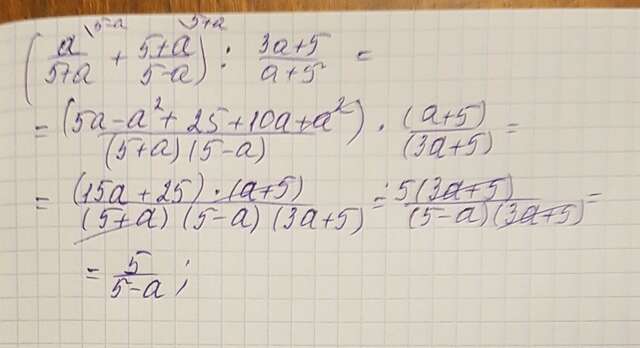 (a\5-a/5+a + 5+a\5+a/5-a) : 3a+5/a+5 =
= (5a-a²+25+10a+a²)/(5+a)(5-a) · (a+5)/(3a+5) =
= (15a+25)·(a+5)/(5+a)(5-a)(3a+5) = 5(3a+5)/(5-a)(3a+5) =
= 5/5-a ;